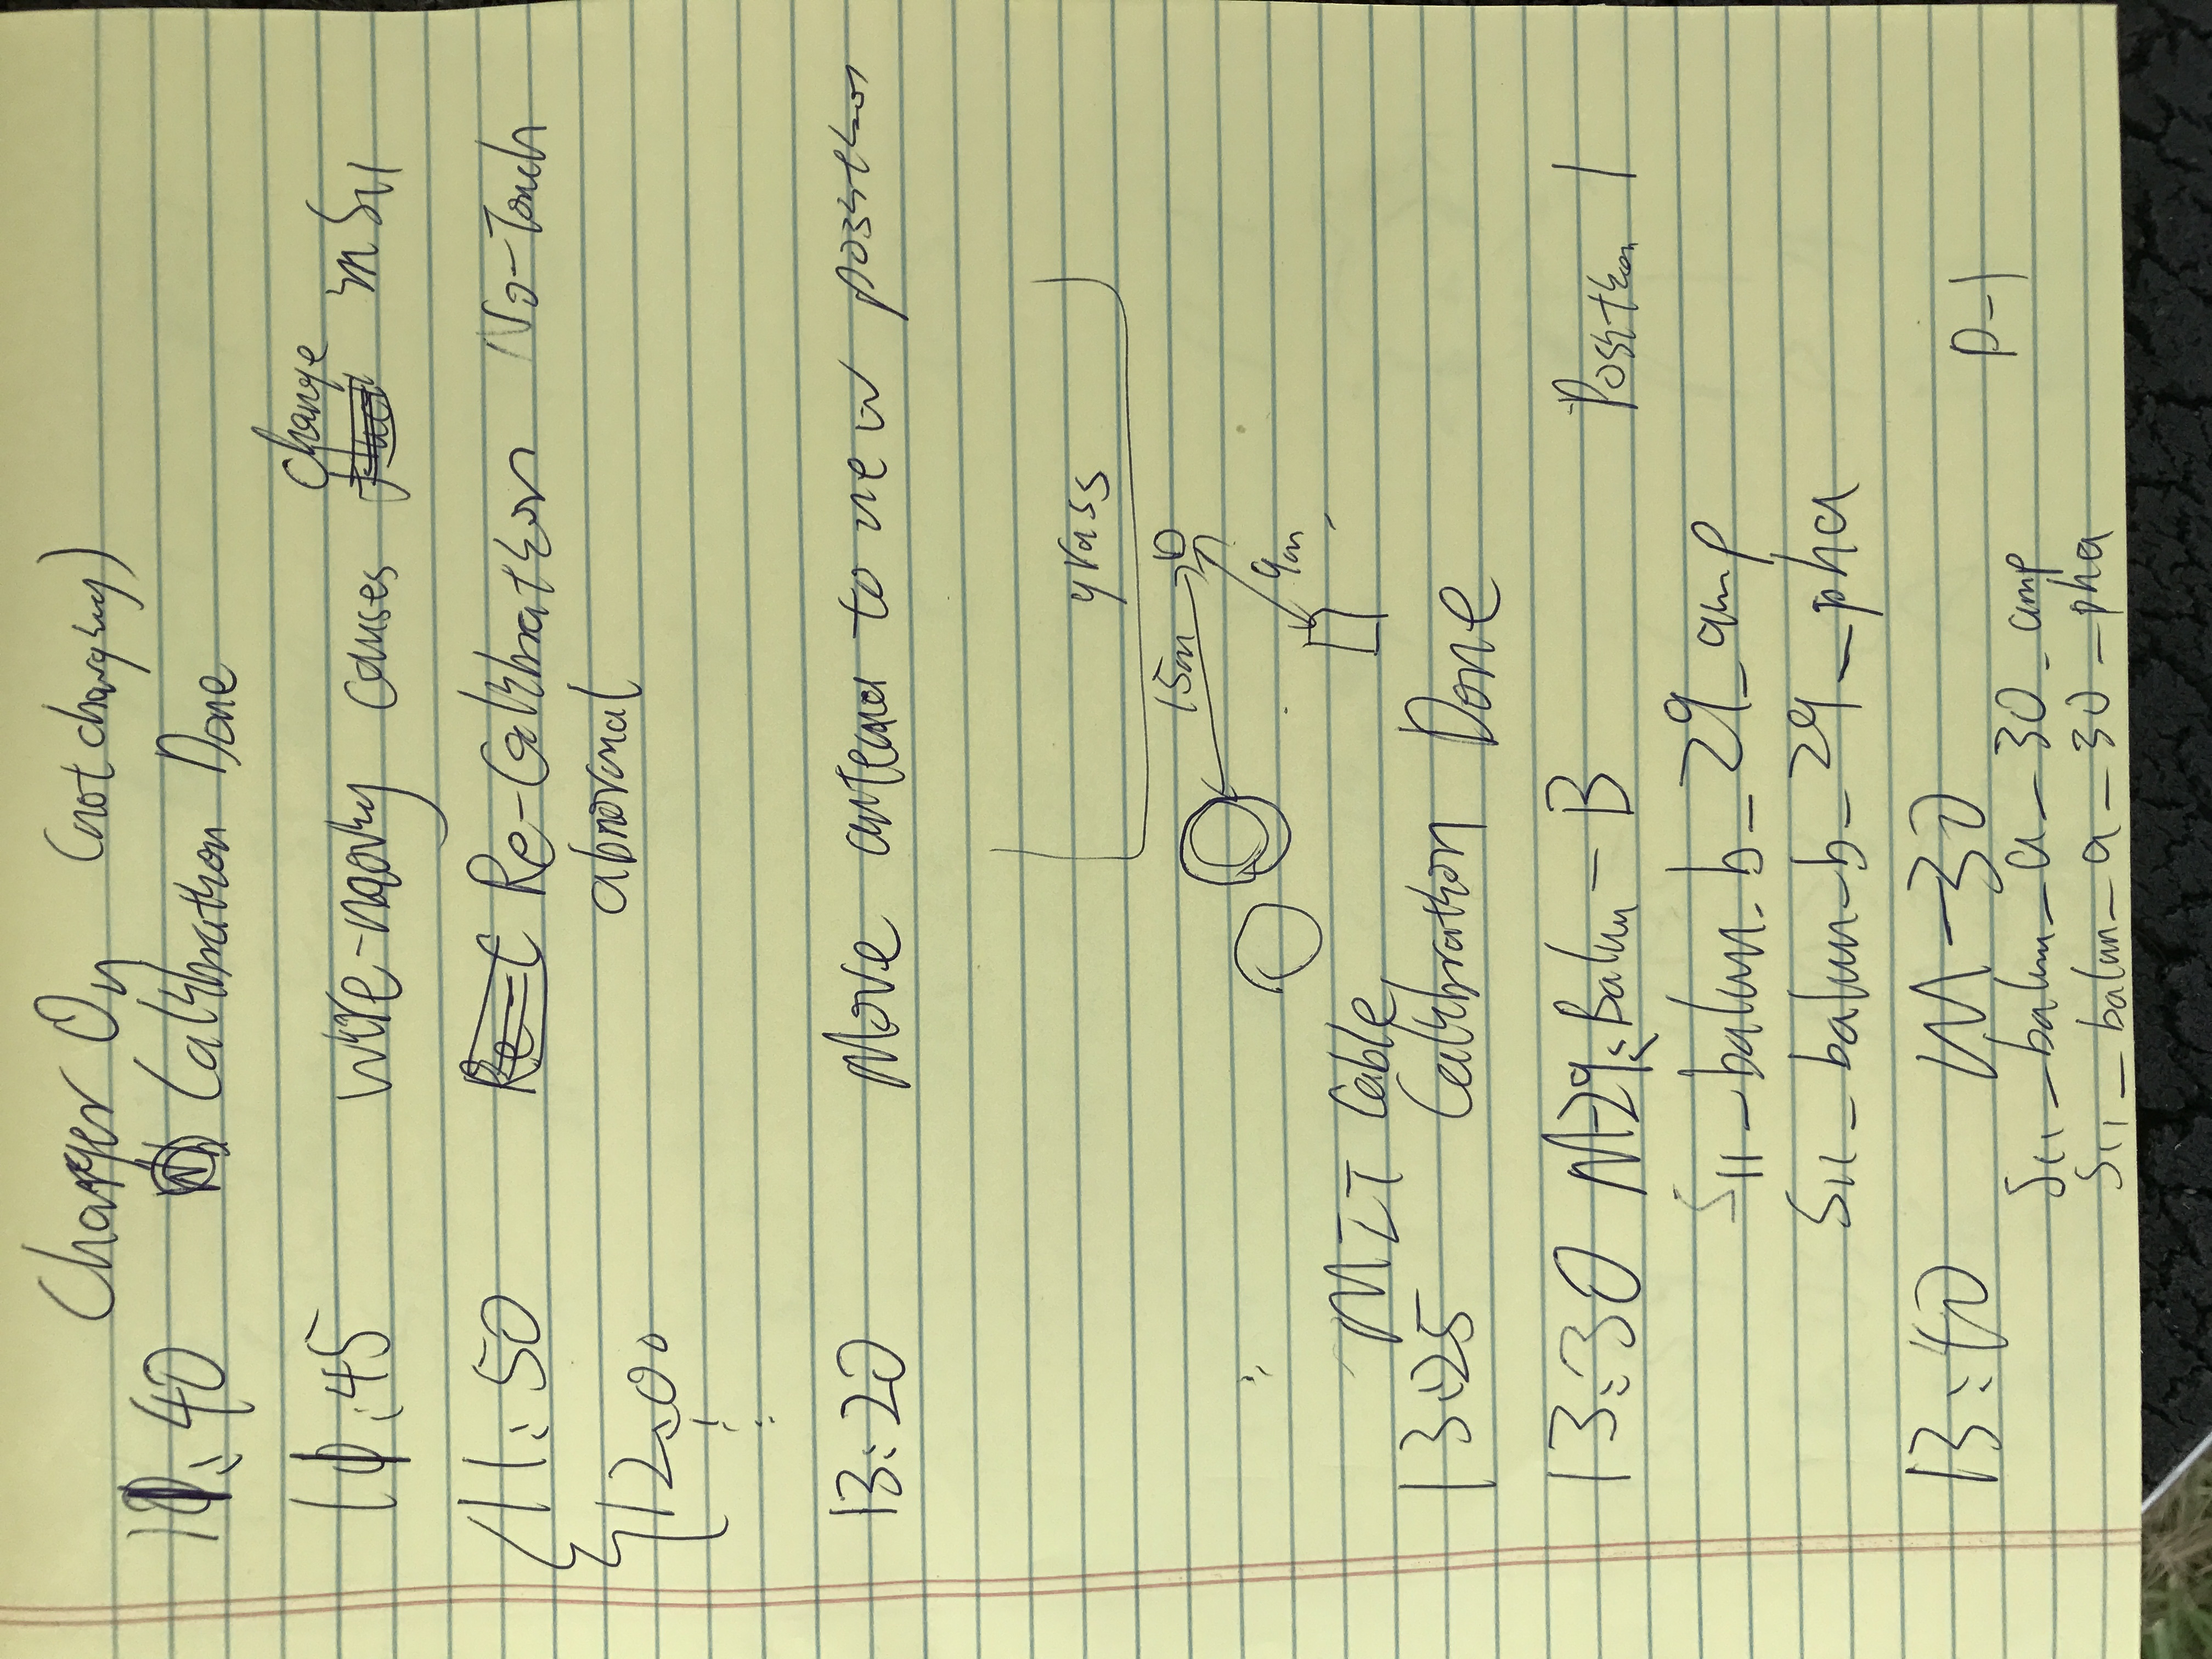 Charger On (not charging)
11:40 Calibration Done
11:45 Wire-nearby causes change in S11
11:50 Re-Calibration No-Touch
12:00 abnormal
13:20 Move antenna to new position
grass
15m
9m
MIT Cable
13:25 Calibration Done
13:30 M-29: Balun-B Position 1
S11-balun-b-29-amp
S11-balun-b-29-pha
13:40 M-30 P-1
S11-balun-a-30-amp
S11-balun-a-30-pha